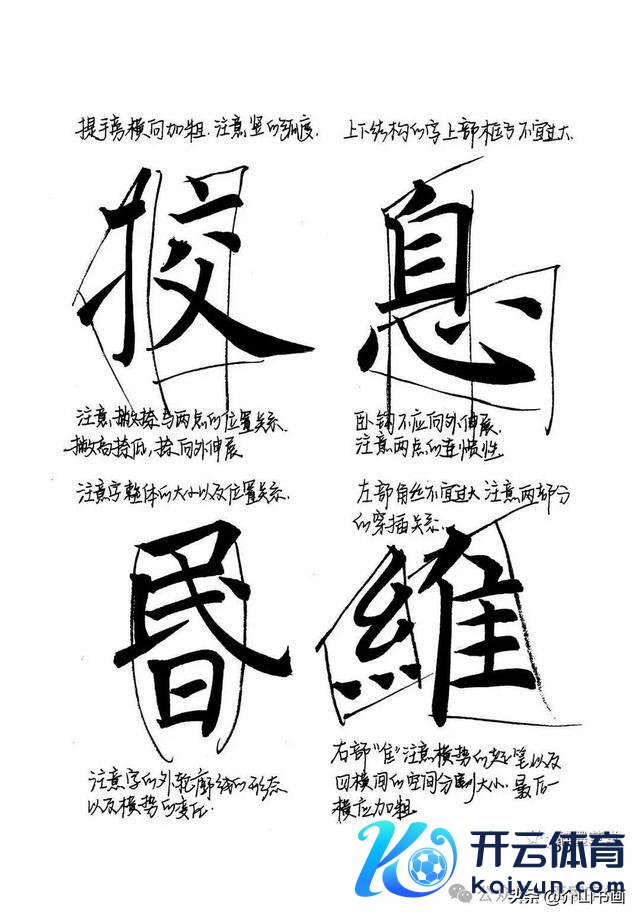 提手旁横向加粗.注意竖的弧度.
上下结构的字上部框字不宜过大.
挍
息
注意撇捺与两点的位置关系.
撇高捺低,捺向外伸展
卧钩不应向外伸展.
注意两点的连惯性
注意字整体的大小以及位置关系.
左部角丝不宜过大 注意两部分
的穿插关系.
昬
維
注意字的外轮廓线的形态
以及横势的变化.
右部"隹"注意横势的起笔以及
四横间的空间分割大小.最后一
横应加粗
开云体育
kaiyun.com
头条 @介山书画